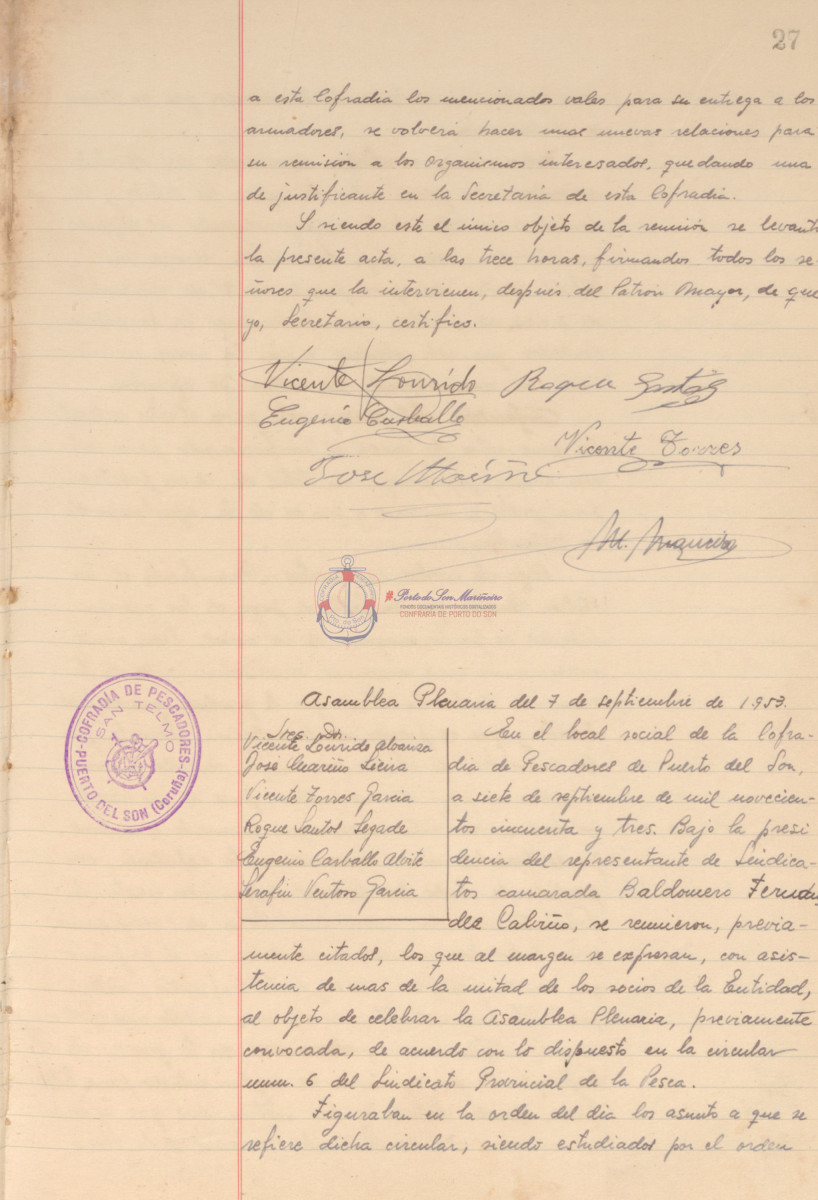 27
a esta Cofradia los mencionados vales para su entrega a los
armadores, se volverá hacer unas nuevas relaciones para
su remisión a los organismos interesados, quedando una
de justificante en la Secretaria de esta Cofradia.
Y siendo este el único objeto de la reunión se levanta
la presente acta, a las trece horas, firmandos todos los se-
ñores que la intervienen, después del Patron Mayor, de que
yo, Secretario, certifico.
Vicente Lourido Roque Santos
Eugenio Carballo
Vicente Torres
Jose Mariño
M.
COFRADIA PESCADORES
PTO. do Son
Porto do Son Mariñeiro
FONDOS DOCUMENTAIS HISTÓRICOS DIXITALIZADOS
CONFRARIA DE PORTO DO SON
Asamblea Plenaria del 7 de septiembre de 1.953.
COFRADÍA DE PESCADORES
SAN TELMO
PUERTO DEL SON (Coruña)
Sres. Dn.
Vicente Lourido
Jose Mariño Sieira
Vicente Torres Garcia
Roque Santos Segade
Eugenio Carballo Alvite
Serafin Ventoso Garcia
En el local social de la Cofra-
dia de Pescadores de Puerto del Son,
a siete de septiembre de mil novecien-
tos cincuenta y tres. Bajo la presi
dencia del representante de Sindica-
tos camarada Baldomero Fernán
dez Calviño, se reunieron, previa-
mente citados, los que al margen se expresan, con asis-
tencia de mas de la mitad de los socios de la Entidad,
al objeto de celebrar la Asamblea Plenaria, previamente
convocada, de acuerdo con lo dispuesto en la circular
num. 6 del Sindicato Provincial de la Pesca.
Figuraban en la orden del dia los asunto a que se
refiere dicha circular, siendo estudiados por el orden